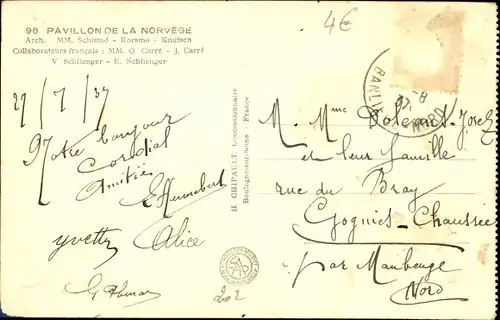 98 PAVILLON DE LA NORVÈGE
Arch. MM. Schistad - Korsmo - Knutsen
Collaborateurs français : MM. G. Carré - J. Carré
V Schlienger - E. Schlienger
27/7/37
Notre bonjour
Cordial
Amitié
E Hennebert
yvette Alice
H. CHIPAULT, Concessionnaire
Boulogne-sur-Seine - France
4€
M. Mme
et leur famille
rue du Bray
Gognies-Chaussée
par Maubeuge
Nord
202